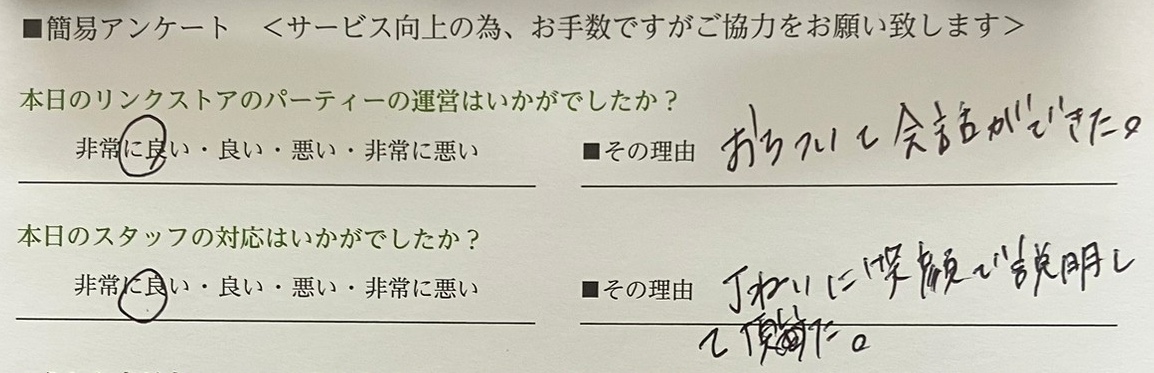 ■簡易アンケート ＜サービス向上の為、お手数ですがご協力をお願い致します＞
本日のリンクストアのパーティーの運営はいかがでしたか？
非常に良い・良い・悪い・非常に悪い ■その理由 おちついて会話ができた。
本日のスタッフの対応はいかがでしたか？
非常に良い・良い・悪い・非常に悪い ■その理由 丁ねいに笑顔で説明し
て頂いた。